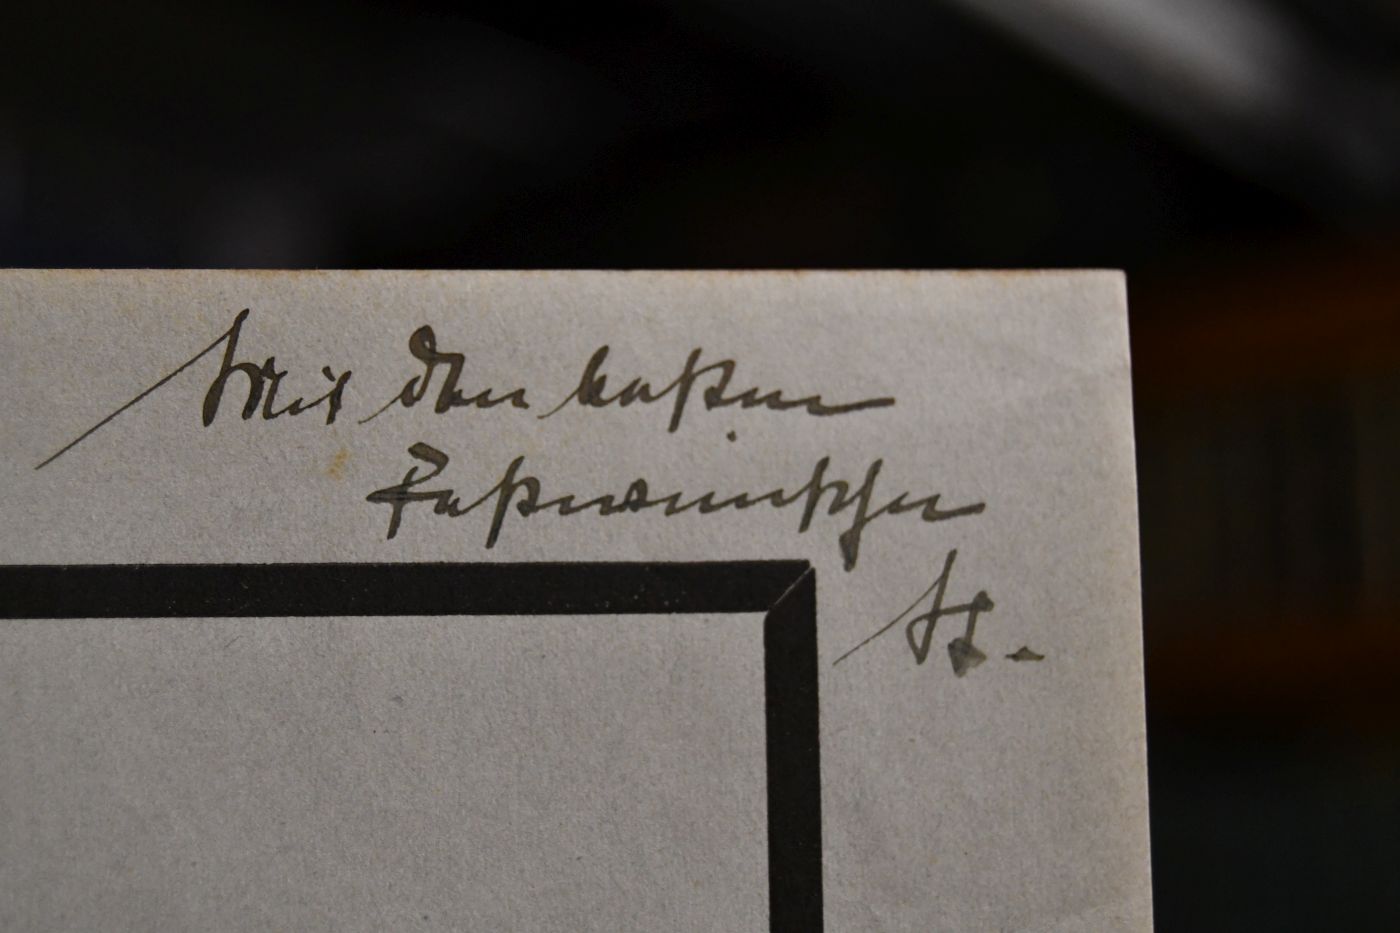 Mit den besten
Festwünschen